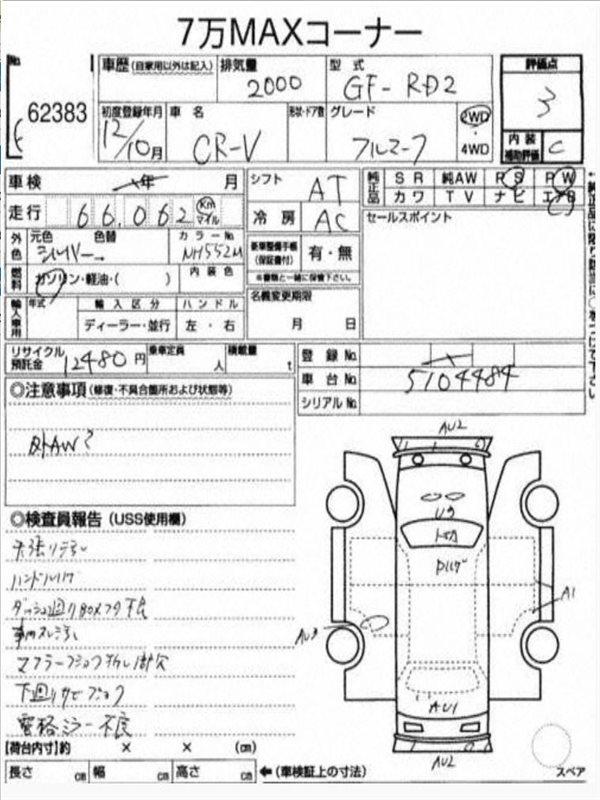 7万MAXコーナー
No.
62383
車歴 (自家用以外は記入)
排気量
2000
型式
GF-RD2
評価点
3
初度登録年月
12/10月
車名
CR-V
形状・ドア数
グレード
フルマーク
2WD
・
4WD
内装
補助評価
C
車検 年 月
シフト
AT
純正品
SR 純AW PS PW
カワ TV ナビ エアB
走行 66,062 Km マイル
冷房
AC
セールスポイント
外色
元色 色替
シルバー→
カラーNo.
NH552M
乗車整備手帳
(保証書付)
有・無
※書類と一緒に保管下さい。
燃料
ガソリン・軽油・( )
内装色
名義変更期限
月 日
輸入車用
年式
輸入区分 ハンドル
ディーラー・並行 左・右
リサイクル
預託金
12480円
乗車定員
人
積載量
t
登録No.
車台No.
5104484
シリアルNo.
◎注意事項 (修復・不具合箇所および状態等)
外AW?
AU2
U3
トビA
A1
AU3
AU1
AU2
◎検査員報告 (USS使用欄)
天張り汚れ
ハンドルハゲ
ダッシュ廻りBOXフタ不良
車内スレ汚れ
下廻りサビ
電格ミラー不良
[荷台内寸]約 × × (cm)
長さ cm 幅 cm 高さ cm
←(車検証上の寸法)
スペア